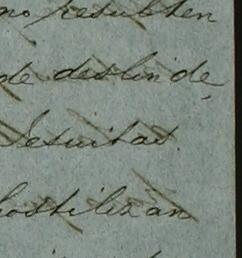 no resulten
de deslinde,
Jesuitas.
hostilizan